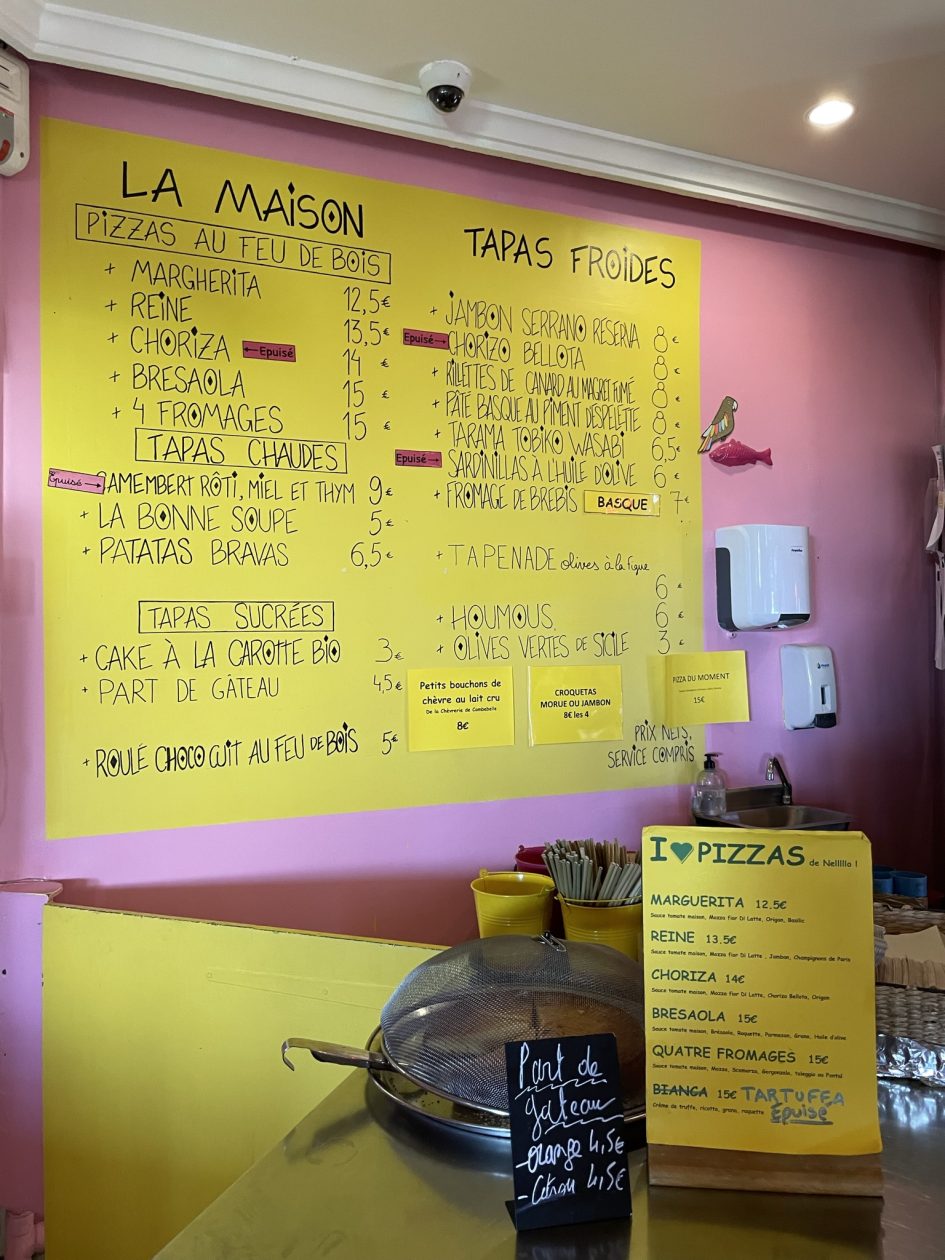 LA MAISON
PIZZAS AU FEU DE BOIS
+ MARGHERITA 12,5€
+ REINE 13,5€
+ CHORIZA ←Epuisé 14 €
+ BRESAOLA 15 €
+ 4 FROMAGES 15 €
TAPAS CHAUDES
Epuisé→ CAMEMBERT RÔTI, MIEL ET THYM 9€
+ LA BONNE SOUPE 5€
+ PATATAS BRAVAS 6,5€
TAPAS SUCRÉES
+ CAKE À LA CAROTTE BIO 3€
+ PART DE GÂTEAU 4,5€
+ ROULÉ CHOCO CUIT AU FEU DE BOIS 5€
TAPAS FROIDES
+ JAMBON SERRANO RESERVA 8€
Epuisé→ CHORIZO BELLOTA 8€
+ RILLETTES DE CANARD AU MAGRET FUMÉ 8€
+ PÂTÉ BASQUE AU PIMENT DESPELETTE 8€
+ TARAMA TOBIKO WASABI 6,5€
Epuisé→ SARDINILLAS À L'HUILE D'OLIVE 6€
+ FROMAGE DE BREBIS BASQUE 7€
+ TAPENADE olives à la figue 6€
+ HOUMOUS 6€
+ OLIVES VERTES DE SICILE 3€
Petits bouchons de
chèvre au lait cru
De la Chèvrerie de Combebelle
8€
CROQUETAS
MORUE OU JAMBON
8€ les 4
PIZZA DU MOMENT
15€
PRIX NETS,
SERVICE COMPRIS
I PIZZAS de Nellllia !
MARGUERITA 12.5€
Sauce tomate maison, Mozza fior Di Latte, Origan, Basilic
REINE 13.5€
Sauce tomate maison, Mozza fior Di Latte , Jambon, Champignons de Paris
CHORIZA 14€
Sauce tomate maison, Mozza fior Di Latte, Chorizo Bellota, Origan
BRESAOLA 15€
Sauce tomate maison, Brésaola, Roquette, Parmesan, Grana, Huile d'olive
QUATRE FROMAGES 15€
Sauce tomate maison, Mozza, Scamorza, Gorgonzola, Taleggio ou Pontal
BIANCA 15€ TARTUFFA
Crème de truffe, ricotta, grana, roquette Epuisé
Part de
gâteau
-orange 4,5€
-Citron 4,5€